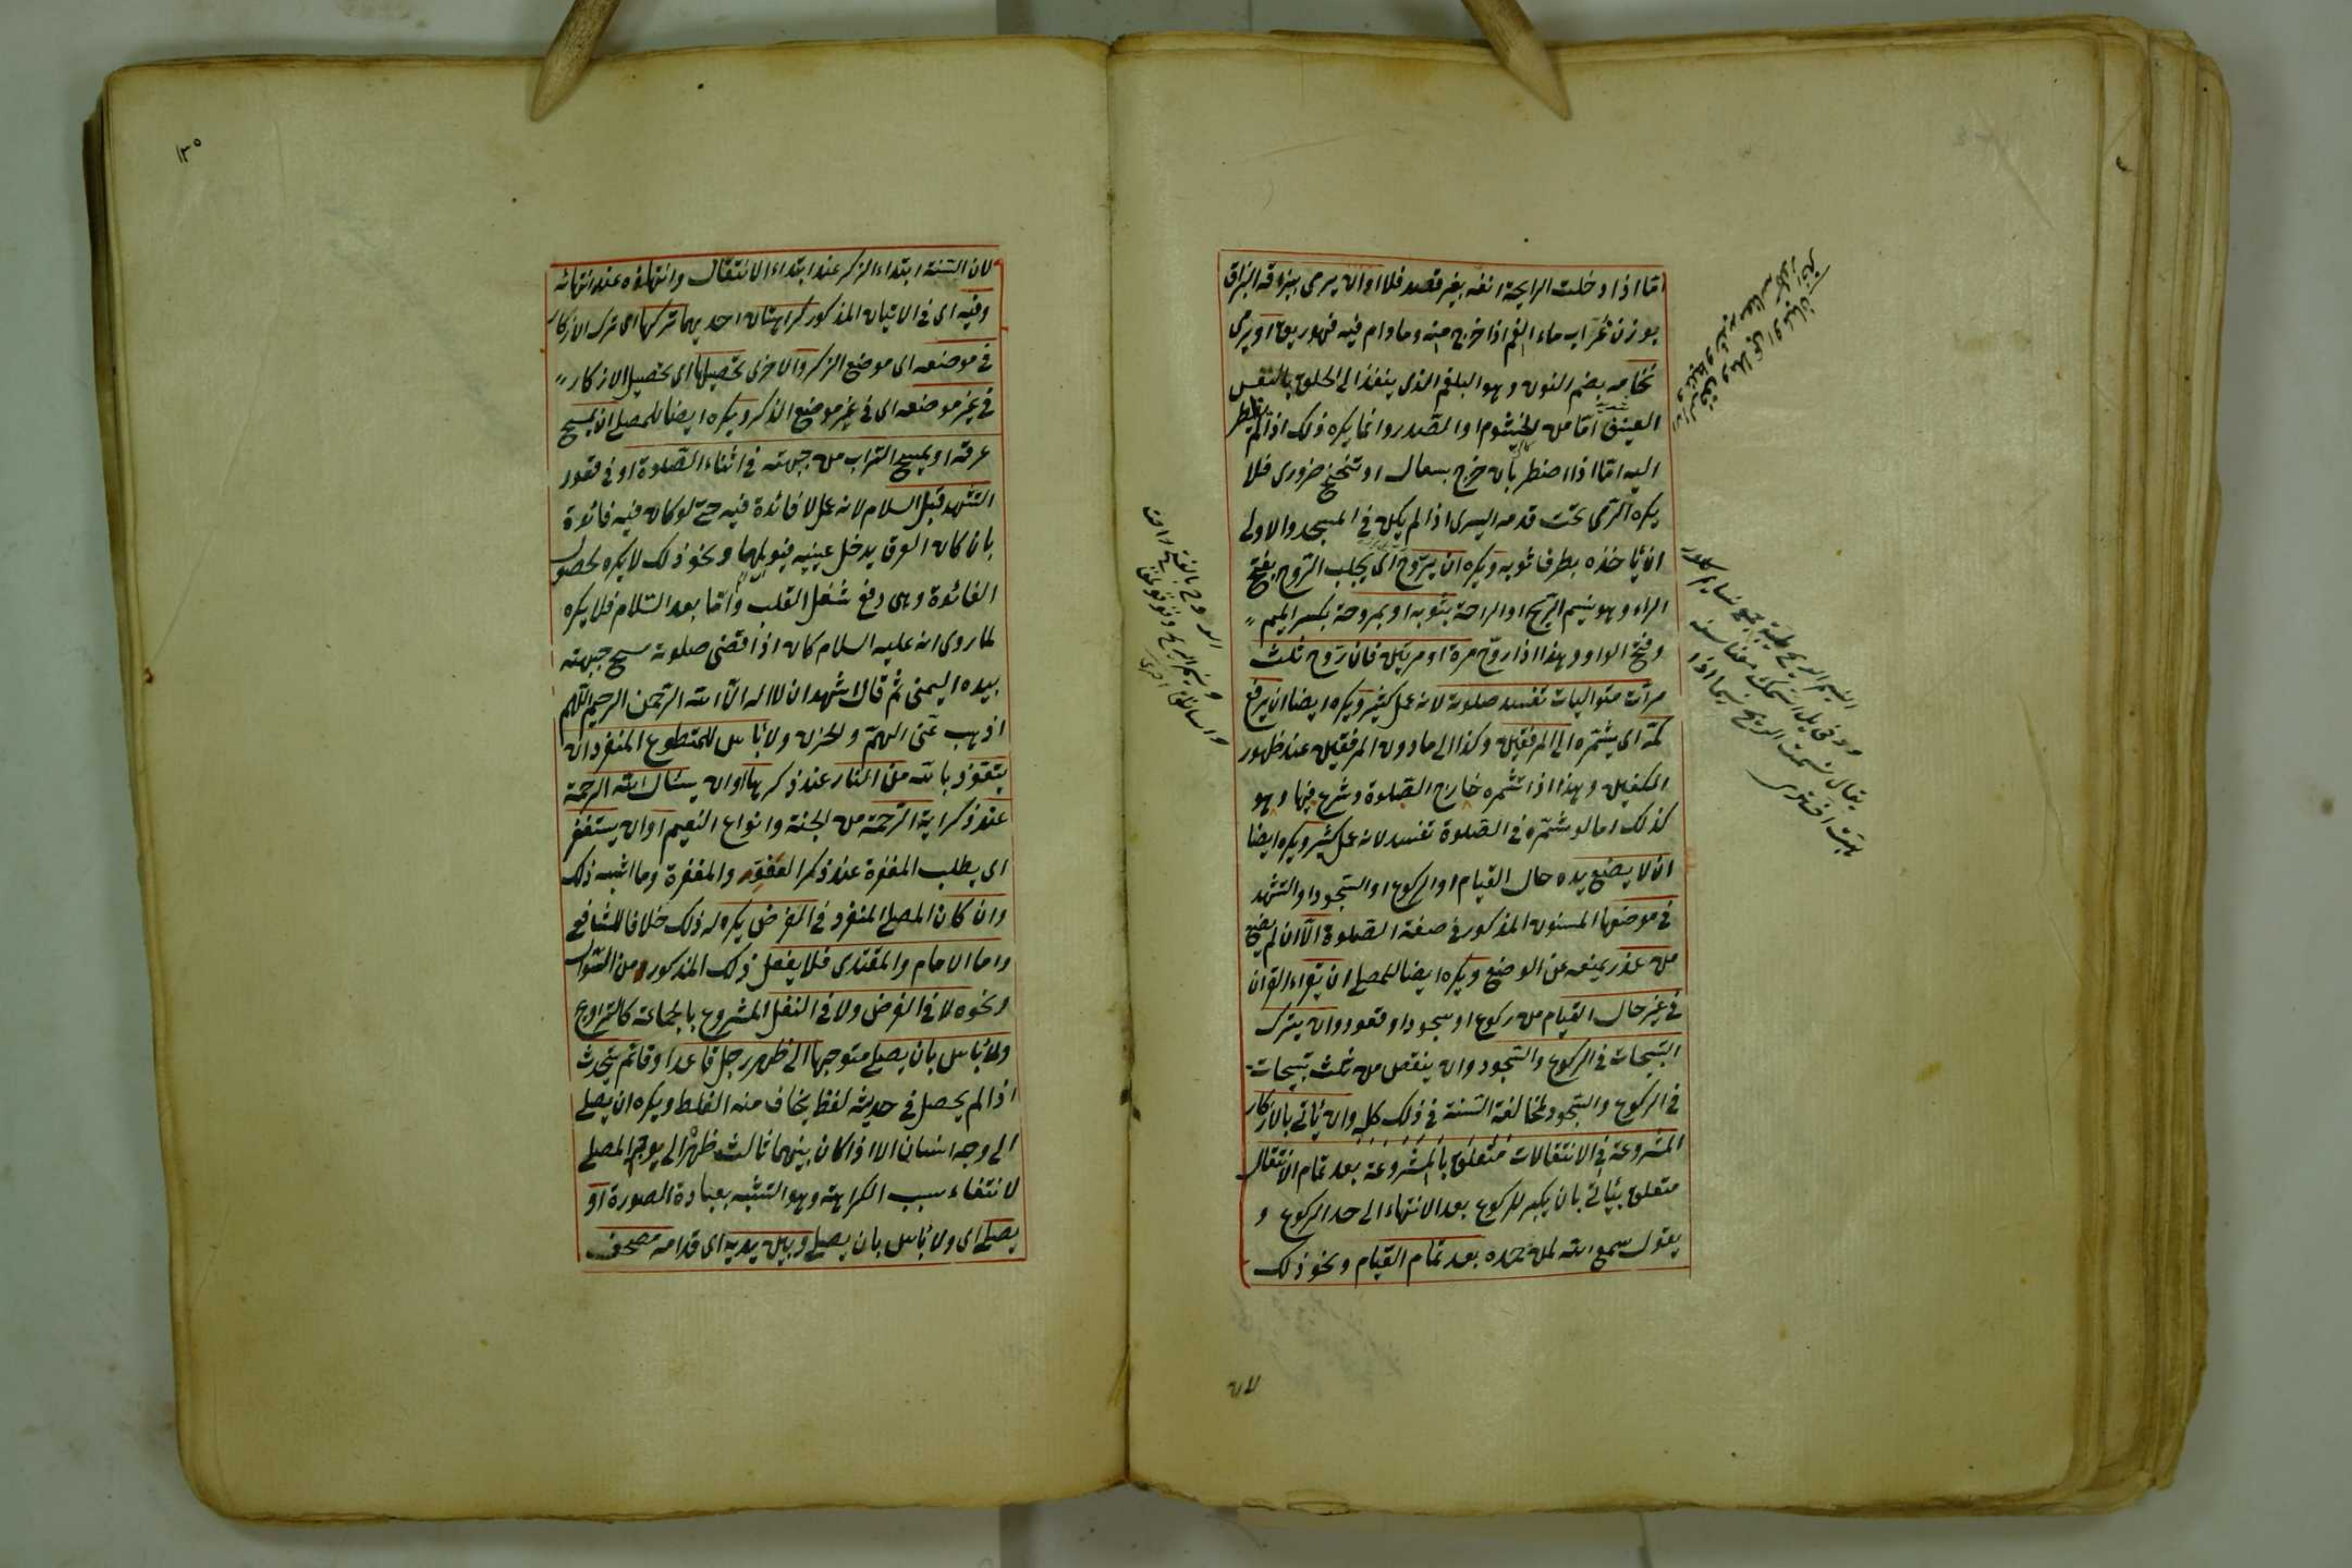 اما اذا دخلت الرايحة انفه بغير قصد فلا او ان يرمى ببزاقه البزاق
بوزن غراب ماء الفم اذا خرج منه وما دام فيه فهو ريق او يرمى
نخامه بضم النون وهو البلغم الذى ينفذ الى الحلق بالنفس
العنيف اما من الخيشوم او الصدر وانما يكره ذلك اذا لم يضطر
اليه اما اذا اضطر بان خرج بسعال او تنحنح ضرورى فلا
يكره الرمى تحت قدمه اليسرى اذا لم يكن فى المسجد والاولى
ان ياخذه بطرف ثوبه ويكره ان يتروح اى يجلب الروح بفتح
الراء وهو نسيم الريح او الراحة بثوبه او بمروحة بكسر الميم
وفتح الواو وهذا اذا روح مرة او مرتين فان روح ثلث
مرات متواليات تفسد صلوته لانه عمل كثير ويكره ايضا ان يرفع
كمه اى يشمره الى المرفقين وكذا الى ما دون المرفقين عند ظهور
الكفين وهذا اذا شمره خارج الصلوة وشرع فيها وهو
كذلك اما لو شمره فى الصلوة تفسد لانه عمل كثير ويكره ايضا
ان لا يضع يده حال القيام او الركوع او السجود او التشهد
فى موضعها المسنون المذكور فى صفة الصلوة الا ان لم يضع
من عذر يمنعه عن الوضع ويكره ايضا للمصلى ان يقراء القران
فى غير حال القيام من ركوع او سجود او قعود وان يترك
التسبيحات فى الركوع والسجود وان ينقص من ثلث تسبيحات
فى الركوع والسجود لمخالفة السنة فى ذلك كله وان ياتى بالاذكار
المشروعة فى الانتقالات متعلق بالمشروعة بعد تمام الانتقال
متعلق بياتى بان يكبر للركوع بعد الانتهاء الى حد الركوع و
يقول سمع الله لمن حمده بعد تمام القيام ونحو ذلك
لان
الروح بالفتح راحت
و نسيم الريح
يقال نسمت الريح نسيما
اختری
١٣٥
لان السنة ابتداء الذكر عند ابتداء الانتقال وانتهاؤه عند انتهائه
وفيه اى فى الاتيان المذكور كراهتان احديهما تركها اى ترك الاذكار
فى موضعه اى موضع الذكر والاخرى تحصيلها اى تحصيل الاذكار
فى غير موضعه اى فى غير موضع الذكر ويكره ايضا للمصلى ان يمسح
عرقه او يمسح التراب من جبهته فى اثناء الصلوة او فى قعود
التشهد قبل السلام لانه عمل لا فائدة فيه حتى لو كان فيه فائدة
بان كان العرق يدخل عينيه فيؤلمهما ونحو ذلك لا يكره لحصول
الفائدة وهى دفع شغل القلب واما بعد السلام فلا يكره
لما روى انه عليه السلام كان اذا قضى صلوته مسح جبهته
بيده اليمنى ثم قال اشهد ان لا اله الا الله الرحمن الرحيم اللهم
اذهب عنى الهم والحزن ولا باس للمتطوع المنفرد ان
يتعوذ بالله من النار عند ذكرها او ان يسئال الله الرحمة
عند ذكر اية الرحمة من الجنة وانواع النعيم او ان يستغفر
اى يطلب المغفرة عند ذكر العفو والمغفرة وما اشبه ذلك
وان كان المصلى المنفرد فى الفرض يكره له ذلك خلافا للشافعى
واما الامام والمقتدى فلا يفعل ذلك المذكور من السؤال
ونحوه لا فى الفرض ولا فى النفل المشروع بالجماعة كالتراويح
ولا باس بان يصلى متوجها الى ظهر رجل قاعد او قائم يتحدث
اذا لم يحصل فى حديثه لفظ يخاف منه الغلط ويكره ان يصلى
الى وجه انسان الا اذا كان بينهما ثالث ظهره الى وجه المصلى
لانتفاء سبب الكراهة وهو التشبه بعبادة الصورة او
يصلى اى ولا باس بان يصلى وبين يديه اى قدامه مصحف